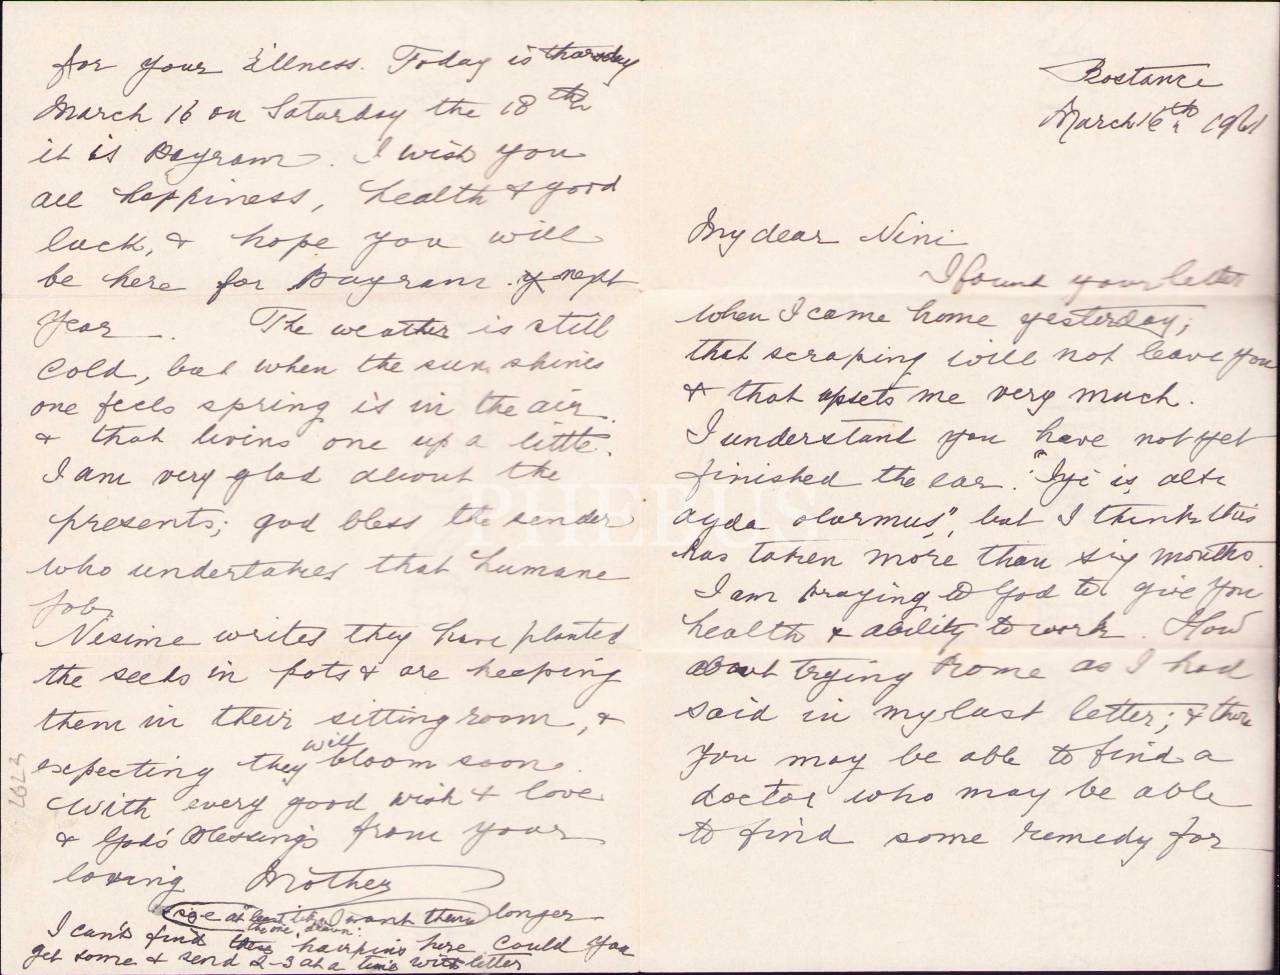 Bostance
March 16th, 1961
My dear Nini
I found your letter
when I came home yesterday;
that scraping will not leave you
& that upsets me very much.
I understand you have not yet
finished the ear. "Iyi is alte
ayda olurmus", but I think this
has taken more than six months.
I am praying to God to give you
health & ability to work. How
about trying Rome as I had
said in my last letter; & there
you may be able to find a
doctor who may be able
to find some remedy for
for your illness. Today is thursday
March 16 on Saturday the 18th
it is Bayram. I wish you
all happiness, health & good
luck, & hope you will
be here for Bayram next
year. The weather is still
cold, but when the sun shines
one feels spring is in the air
& that livins one up a little.
I am very glad about the
presents; god bless the sender
who undertakes that humane
job.
Nesime writes they have planted
the seeds in pots & are keeping
them in their sitting room, &
expecting they will bloom soon.
With every good wish & love
& God's Blessings from your
loving Mother
size at least I want them longer
the one drawn.
I can't find these hairpins here could you
get some & send 2-3 at a time with letter
2623
PHEBUS